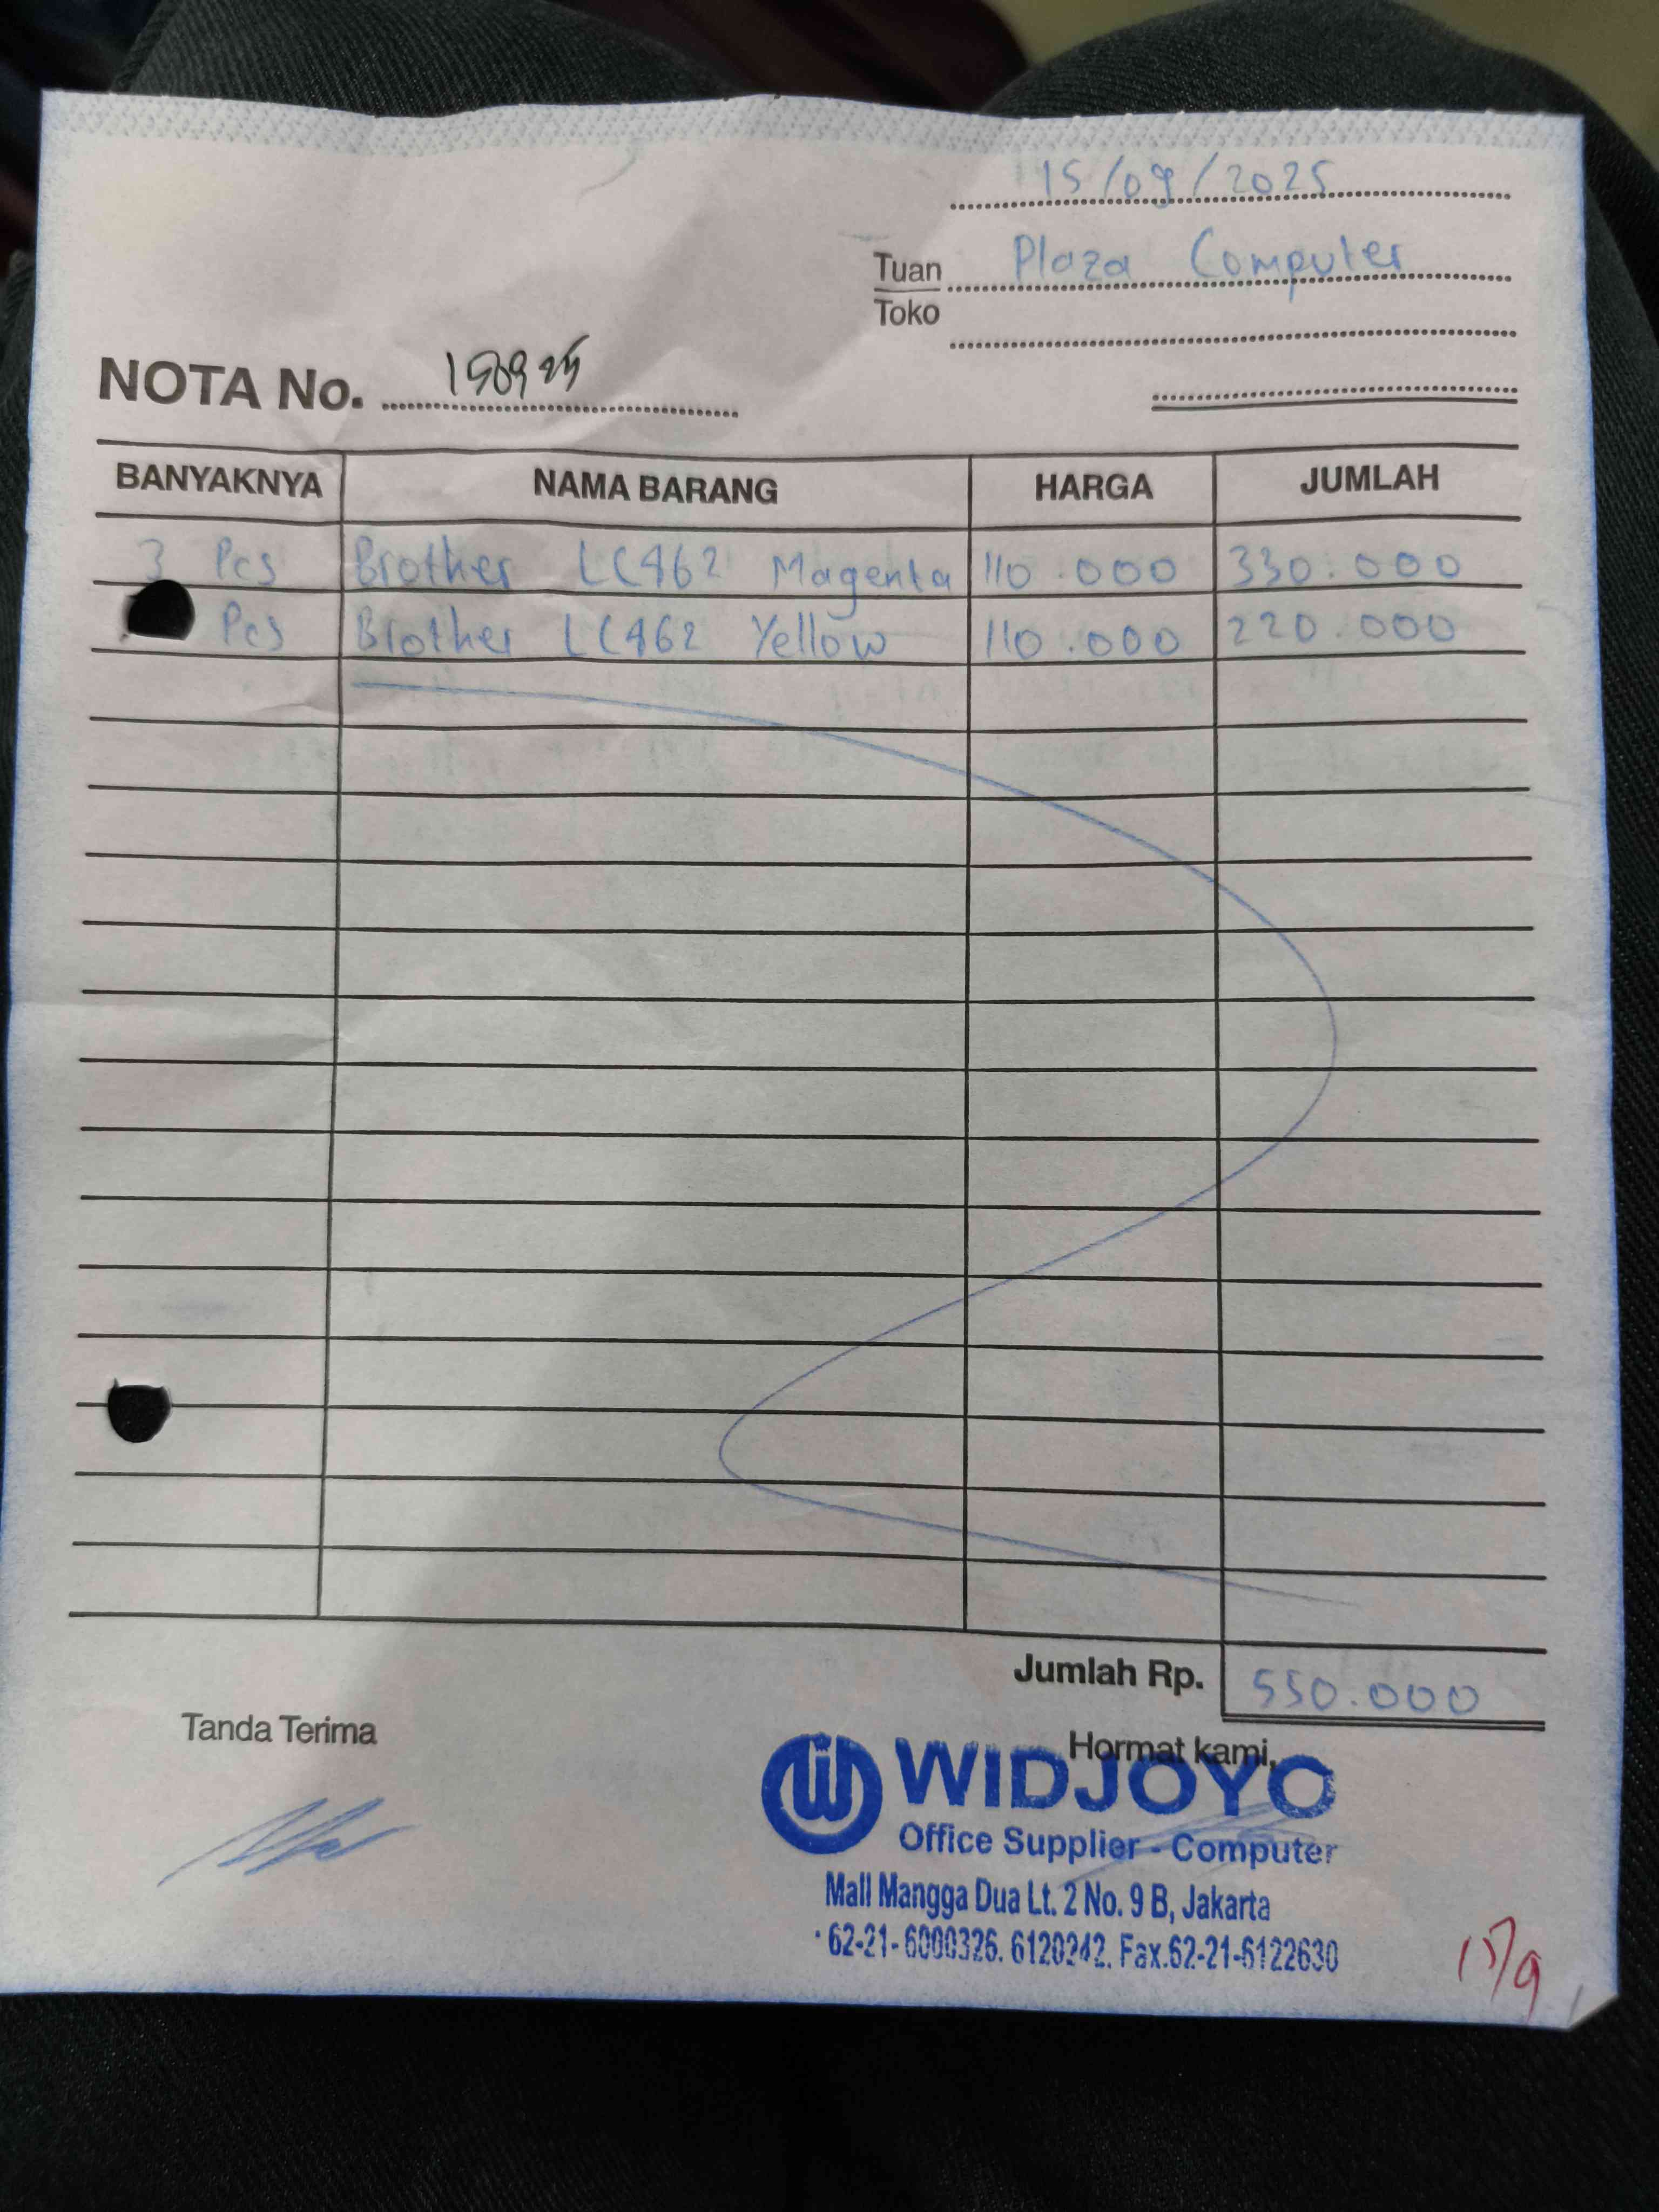 15/09/2025
Tuan Plaza Computer
Toko
NOTA No. 150925
BANYAKNYA NAMA BARANG HARGA JUMLAH
3 Pcs Brother LC462 Magenta 110.000 330.000
Pcs Brother LC462 Yellow 110.000 220.000
Jumlah Rp. 550.000
Tanda Terima
Hormat kami,
WIDJOYO
Office Supplier - Computer
Mall Mangga Dua Lt. 2 No. 9 B, Jakarta
62-21-6000326. 6120242. Fax.62-21-6122630
15/9